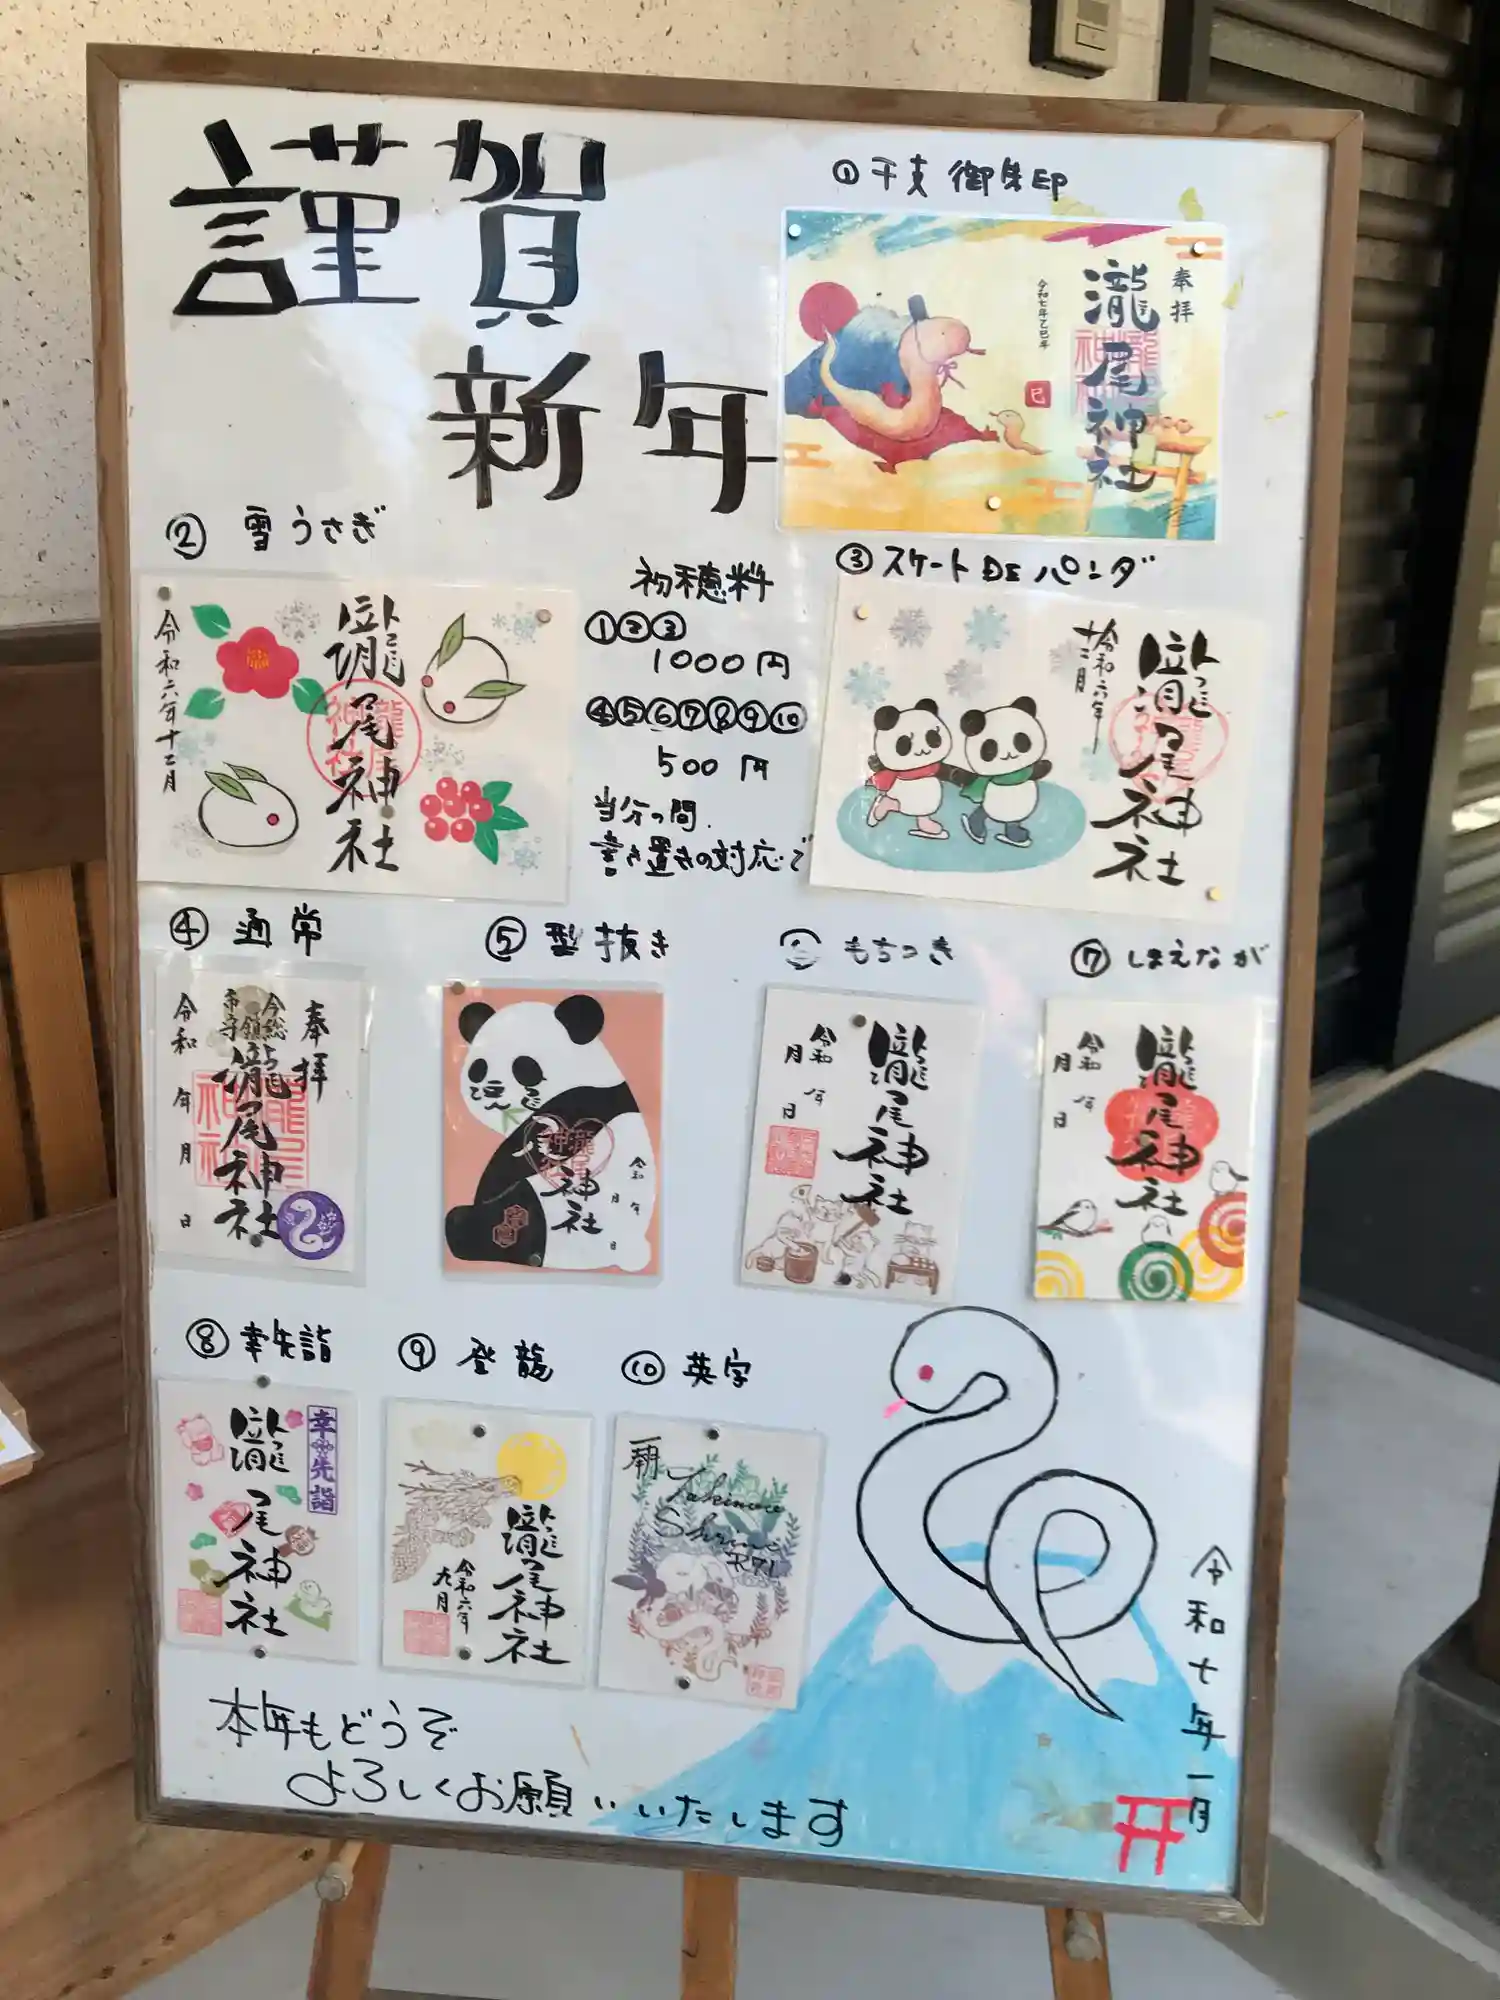 謹賀
新年
①干支 御朱印
奉拝
瀧尾神社
令和七年乙巳年
巳
② 雪うさぎ
瀧尾神社
令和六年十二月
初穂料
①②③
1000円
④⑤⑥⑦⑧⑨⑩
500円
当分の間
書き置きの対応で
③スケートDEパンダ
瀧尾神社
令和六年
十二月
④ 通常
奉拝
瀧尾神社
令和 年 月 日
⑤ 型抜き
瀧尾神社
令和 年
月 日
もちつき
瀧尾神社
令和 年
月 日
⑦ しまえなが
瀧尾神社
令和 年
月 日
⑧ 幸先詣
幸先詣
瀧尾神社
⑨ 登龍
瀧尾神社
令和六年
九月
⑩ 英字
奉拝
Takinoo
Shrine
R7.1
本年もどうぞ
よろしくお願いいたします
令和七年一月